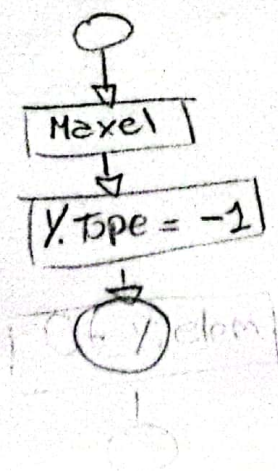 Maxel
Y.Tope = -1